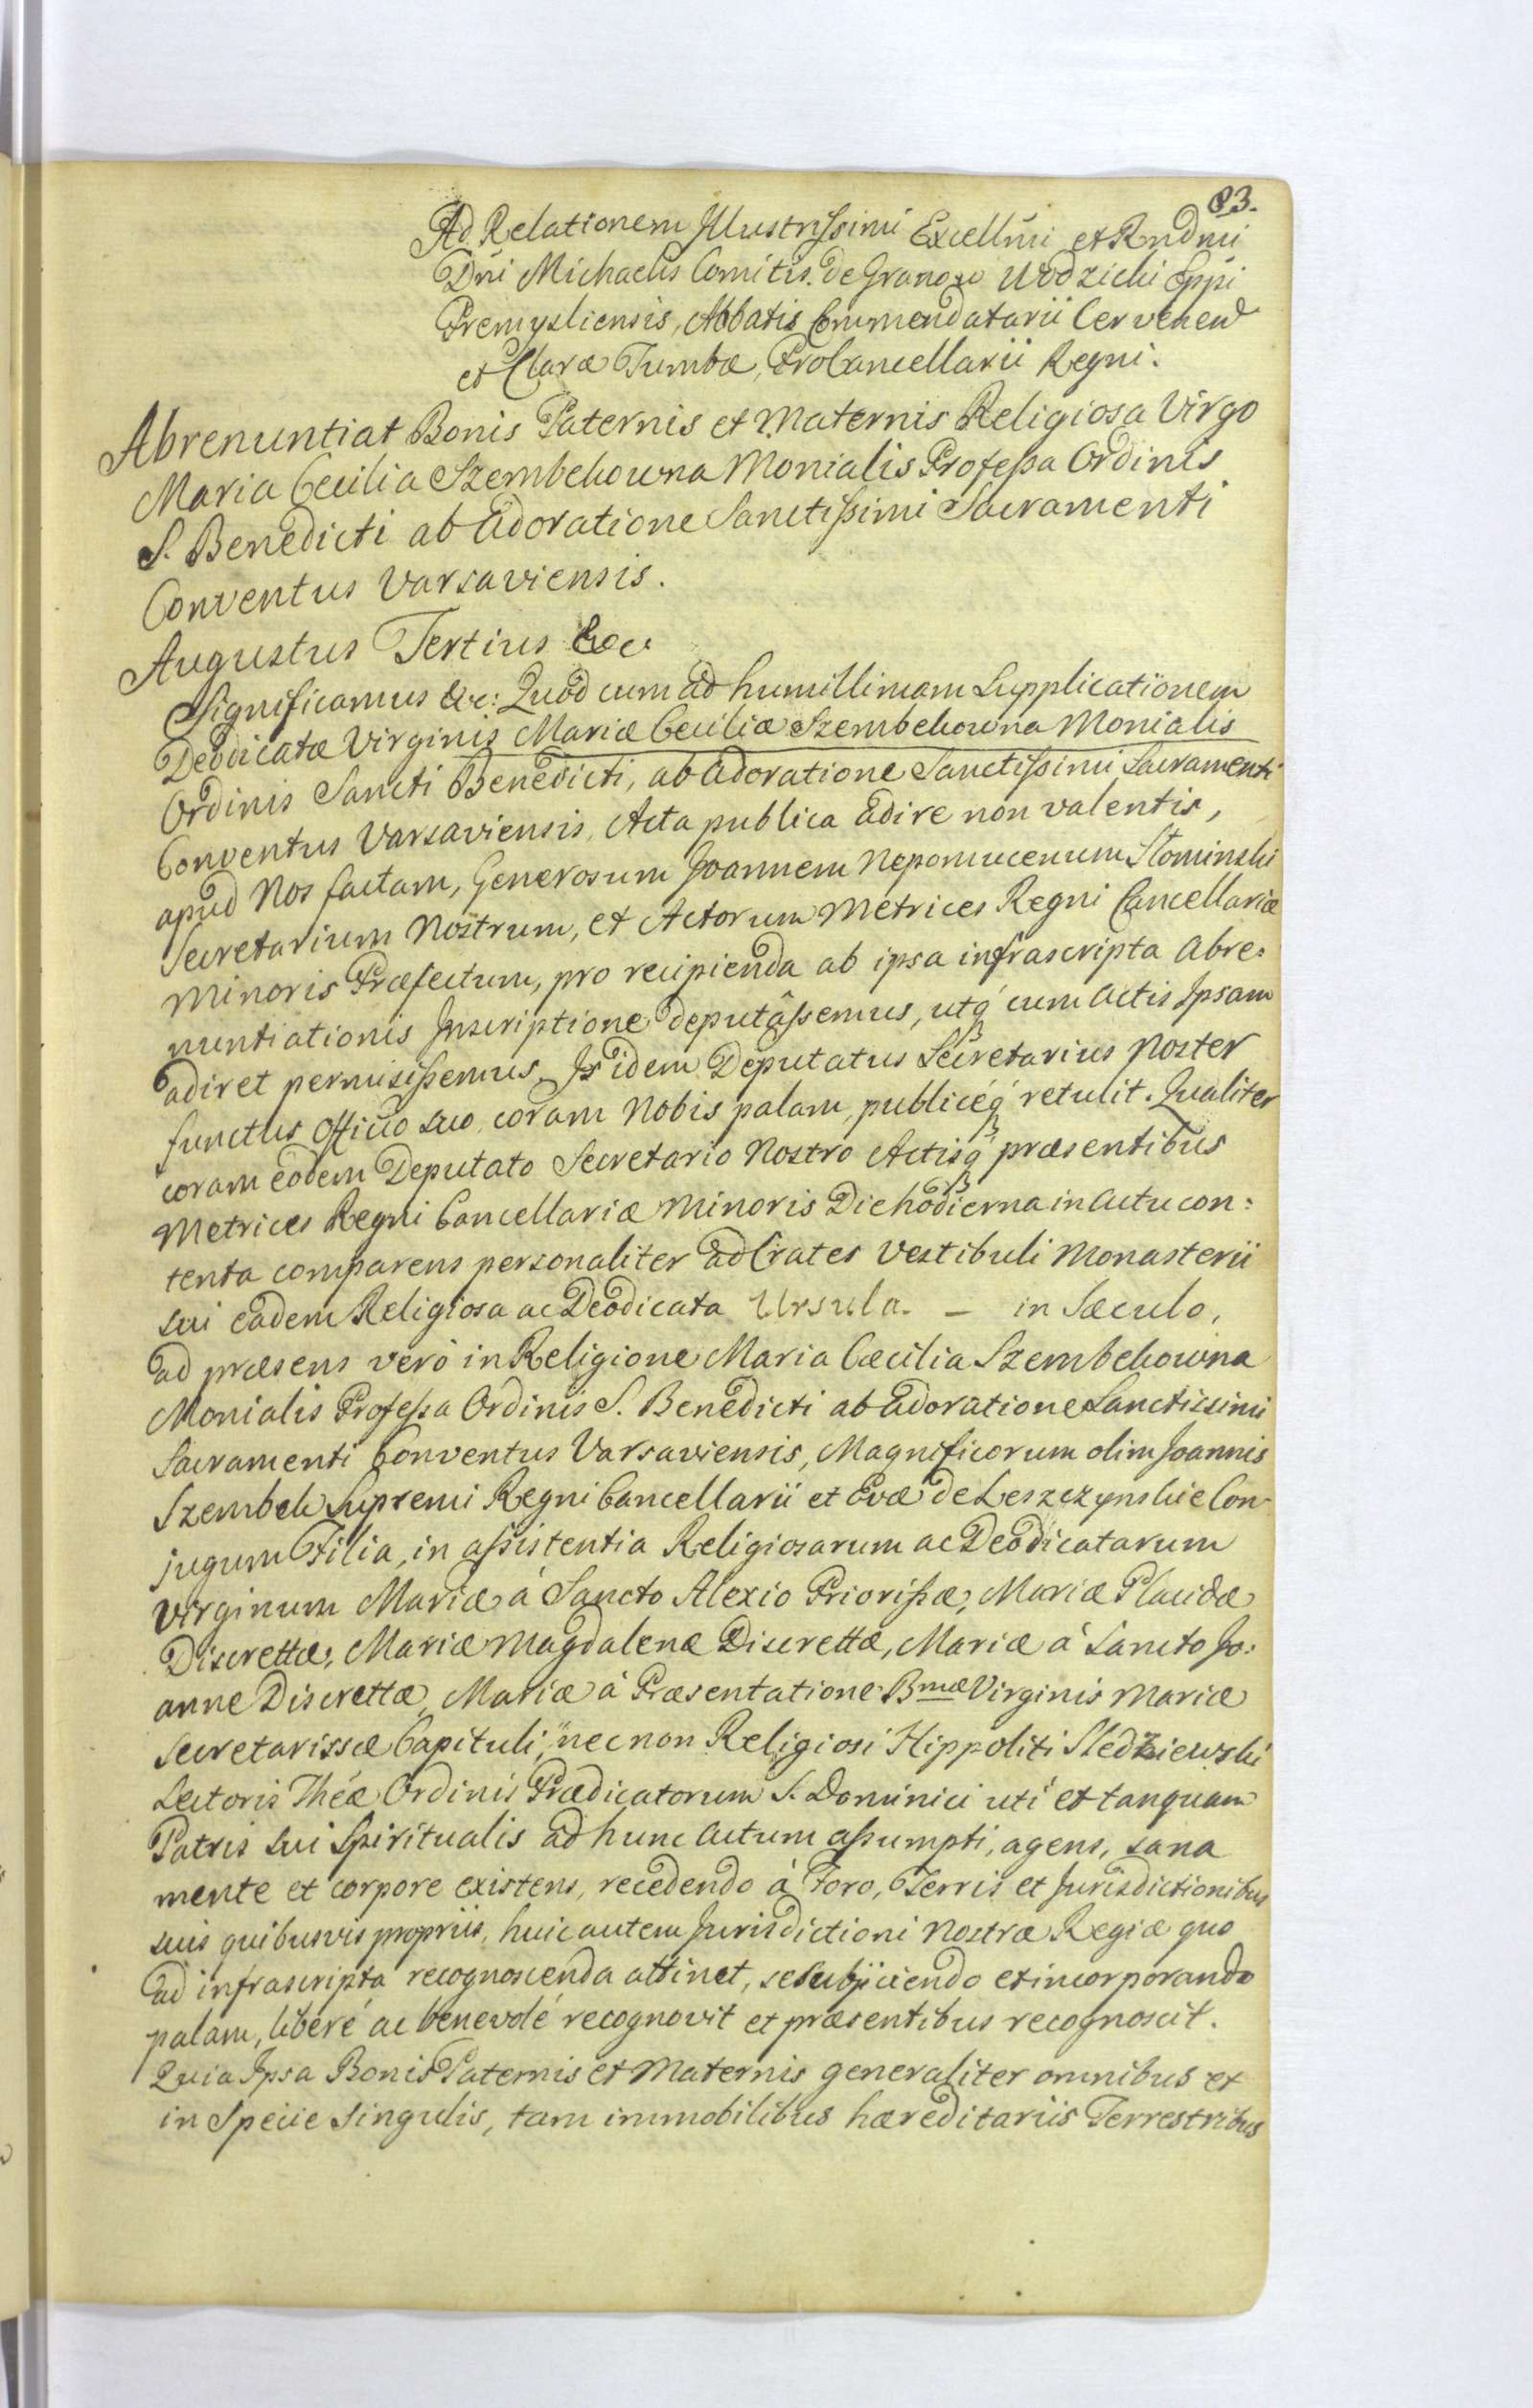 83.
Ad Relationem Illustrissimi Excellmi et Rndmi
Dni Michaelis Comitis de Granow Wodzicki Eppi
Premysliensis, Abbatis Commendatarii Cervenen
et Claræ Tumbæ, ProCancellarii Regni.
Abrenuntiat Bonis Paternis et Maternis Religiosa Virgo
Maria Cecilia Szembekowna Monialis Professa Ordinis
S. Benedicti ab Adoratione Sanctissimi Sacramenti
Conventus Varsaviensis.
Augustus Tertius &c
Significamus &c: Quod cum ad humillimam Supplicationem
Deodicatæ Virginis Mariæ Ceciliæ Szembekowna Monialis
Ordinis Sancti Benedicti, ab Adoratione Sanctissimi Sacramenti
Conventus Varsaviensis, Acta publica adire non valentis,
apud Nos factam, Generosum Joannem Nepomucenum Słominski
Secretarium Nostrum, et Actorum Metrices Regni Cancellariæ
Minoris Præfectum, pro recipienda ab ipsa infrascripta Abre:
nuntiationis Inscriptione deputâssemus, utq́ cum Actis Ipsam
adiret permisissemus. Is idem Deputatus Secretarius Noster
functus Officio suo, coram Nobis palam, publicéq́ retulit. Qualiter
coram eodem Deputato Secretario Nostro Actisq́ præsentibus
Metrices Regni Cancellariæ Minoris Die hodierna in Actu con:
tenta comparens personaliter ad Crates Vestibuli Monasterii
sui eadem Religiosa ac Deodicata Ursula. – in Sæculo,
ad præsens verò in Religione Maria Cæcilia Szembekowna
Monialis Professa Ordinis S. Benedicti ab Adoratione Sanctissimi
Sacramenti Conventus Varsaviensis, Magnificorum olim Joannis
Szembek Supremi Regni Cancellarii et Evæ de Leszczynskie Con-
jugum Filia, in assistentia Religiosarum ac Deodicatarum
Virginum Mariæ à Sancto Alexio Priorissæ, Mariæ Placidæ
Discrettæ, Mariæ Magdalenæ Discrettæ, Mariæ à Sancto Jo:
anne Discrettæ, Mariæ à Præsentatione Bmæ Virginis Mariæ
Secretarissæ Capituli, nec non Religiosi Hippoliti Sledziewski
Lectoris Theæ Ordinis Prædicatorum S. Dominici uti et tanquam
Patris sui Spiritualis ad hunc Actum assumpti, agens, sana
mente et corpore existens, recedendo à Foro, Terris et Jurisdictionibus
suis quibusvis propriis, huic autem Jurisdictioni Nostræ Regiæ quo
ad infrascripta recognoscenda attinet, se subjiciendo et incorporando
palam, liberé ac benevolé recognovit et præsentibus recognoscit.
Quia Ipsa Bonis Paternis et Maternis generaliter omnibus et
in Specie singulis, tam immobilibus hæreditariis Terrestribus